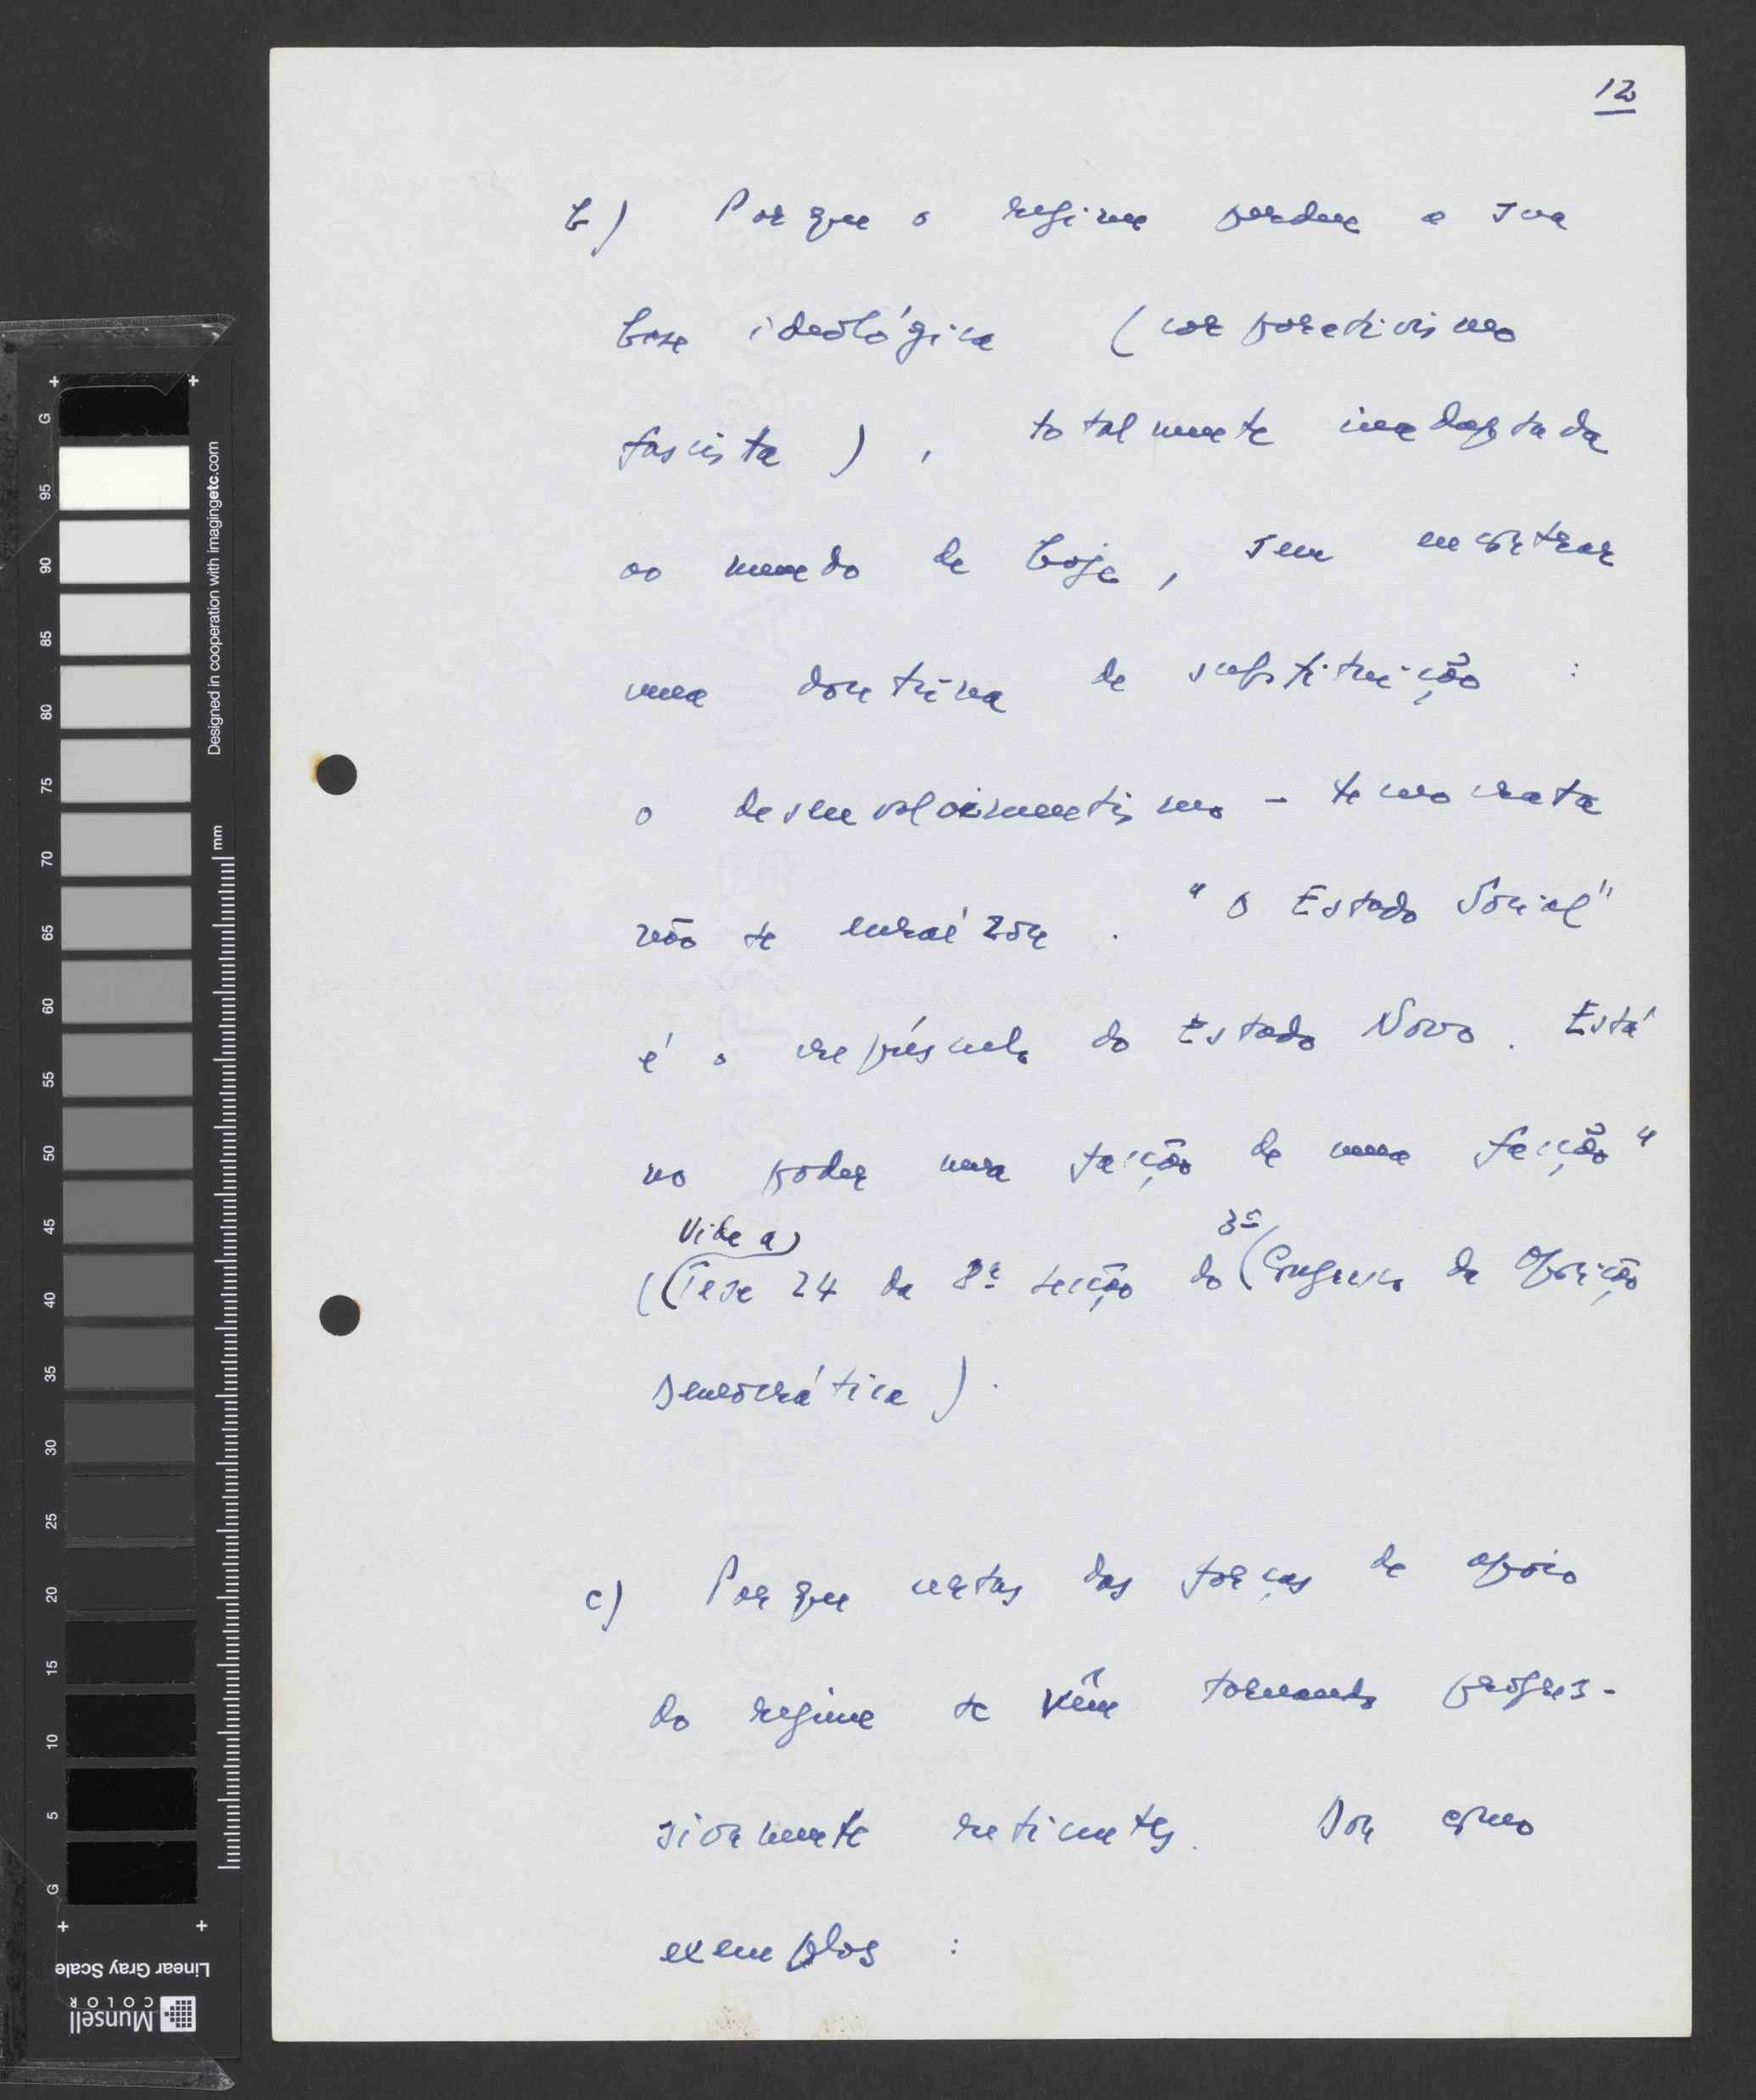 12
b) Porque o regime perdeu a sua
base ideológica (corporativismo
fascista), totalmente inadaptada
ao mundo de hoje, sem encontrar
uma doutrina de substituição :
o desenvolvimentismo - tecnocrata
não se enraízou. "O Estado Social"
é o crepúsculo do Estado Novo. Está
no poder uma facção de uma facção"
Vide a
3º
(Tese 24 da 8ª secção do Congresso da Oposição
Democrática).
c) Porque certas das forças de apoio
do regime se vêm tornando progres-
sivamente reticentes. Dou como
exemplos :
G
95
90
85
80
75
70
65
60
55
50
45
40
35
30
25
20
15
10
5
G
mm
Designed in cooperation with imagingetc.com
Linear Gray Scale
Munsell
COLOR